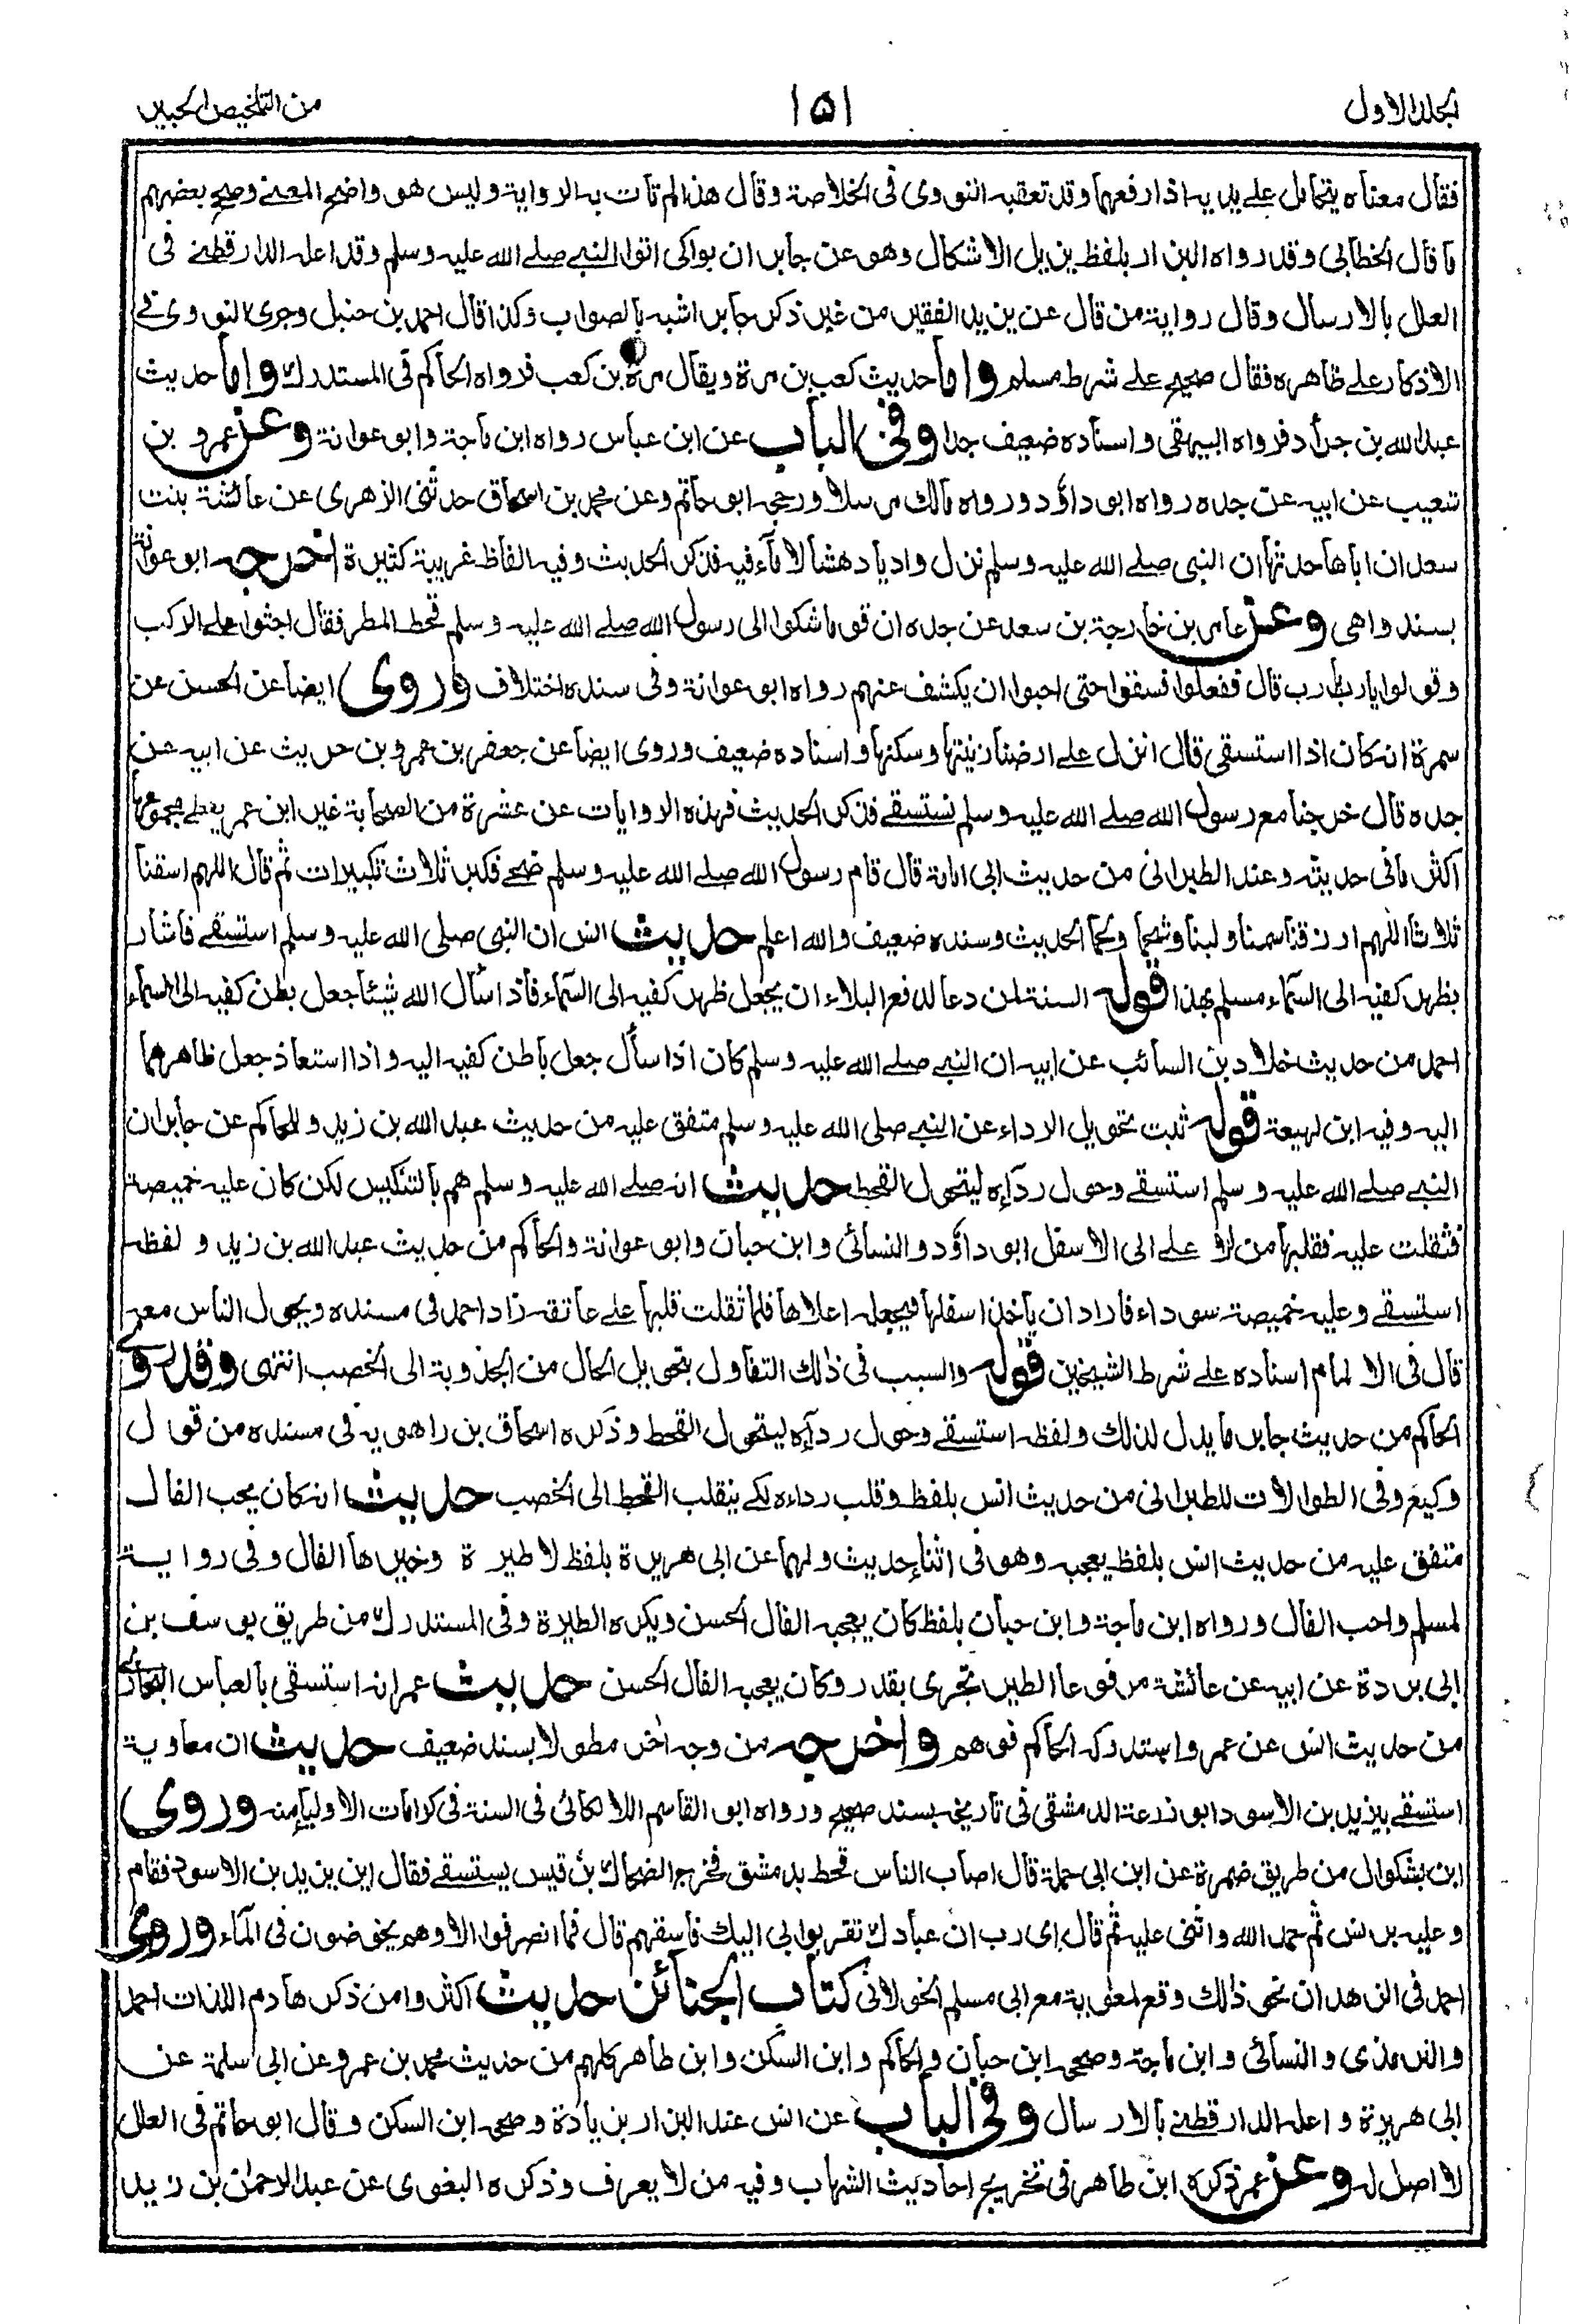 الجلد الاول
١٥١
من التلخيص الحبير
فقال معناه يتحامل على يديه اذا رفعهما وقد تعقبه النووى فى الخلاصة وقال هذا لم تات به الرواية وليس هو واضح المعنے وصحح بعضهم
ما قال الخطابى وقد رواه البزار بلفظ يزيل الاشكال وهو عن جابر ان بواكى اتوا النبي صلے الله عليه وسلم وقد اعله الدارقطنے فى
العلل بالارسال وقال رواية من قال عن يزيد الفقير من غير ذكر جابر اشبه بالصواب وكذا قال احمد بن حنبل وجرى النووى فے
الاذكار علے ظاهره فقال صحيح علے شرط مسلم واما حديث كعب بن مرة ويقال مرة بن كعب فرواه الحاكم فى المستدرك واما حديث
عبد الله بن جراد فرواه البيهقى واسناده ضعيف جدا وفى الباب عن ابن عباس رواه ابن ماجة وابو عوانة وعن عمرو بن
شعيب عن ابيه عن جده رواه ابو داؤد ورواه مالك مرسلا ورجحه ابو حاتم وعن محمد بن اسحاق حدثنى الزهرى عن عائشة بنت
سعد ان اباها حدثها ان النبى صلے الله عليه وسلم نزل واديا دهشا لا ماء فيه فذكر الحديث وفيه الفاظ غريبة كثيرة اخرجه ابو عوانة
بسند واهى وعن عامر بن خارجة بن سعد عن جده ان قوما شكوا الى رسول الله صلے الله عليه وسلم قحط المطر فقال اجثوا علے الركب
وقولوا يا رب يا رب قال ففعلوا فسقوا حتى احبوا ان يكشف عنهم رواه ابو عوانة وفى سنده اختلاف وروى ايضا عن الحسن عن
سمرة انه كان اذا استسقى قال انزل علے ارضنا زينتها وسكنها واسناده ضعيف وروى ايضا عن جعفر بن عمرو بن حريث عن ابيه عن
جده قال خرجنا مع رسول الله صلے الله عليه وسلم نستسقے فذكر الحديث فهذه الروايات عن عشرة من الصحابة غير ابن عمر يعطے مجموعها
اكثر ما فى حديثه وعند الطبرانى من حديث ابى امامة قال قام رسول الله صلے الله عليه وسلم ضحے فكبر ثلاث تكبيرات ثم قال اللهم اسقنا
ثلاثا اللهم ارزقنا سمنا ولبنا وشحما ولحما الحديث وسنده ضعيف والله اعلم حديث انس ان النبى صلى الله عليه وسلم استسقے فاشار
بظهر كفيه الى السماء مسلم بهذا قوله السنة لمن دعا لدفع البلاء ان يجعل ظهر كفيه الى السماء فاذا سأل الله شيئا جعل بطن كفيه الى السماء
احمد من حديث خلاد بن السائب عن ابيه ان النبے صلے الله عليه وسلم كان اذا سأل جعل باطن كفيه اليه واذا استعاذ جعل ظاهرهما
اليه وفيه ابن لهيعة قوله ثبت تحويل الرداء عن النبے صلى الله عليه وسلم متفق عليه من حديث عبد الله بن زيد وللحاكم عن جابر ان
النبے صلے الله عليه وسلم استسقے وحول رداءه ليتحول القحط حديث انه صلے الله عليه وسلم هم بالتنكيس لكن كان عليه خميصة
فثقلت عليه فقلبها من الاعلے الى الاسفل ابو داؤد والنسائى وابن حبان وابو عوانة والحاكم من حديث عبد الله بن زيد ولفظه
استسقے وعليه خميصة سوداء فاراد ان ياخذ اسفلها فيجعله اعلاها فلما ثقلت قلبها علے عاتقه زاد احمد فى مسنده ويحول الناس معه
قال فى الالمام اسناده علے شرط الشيخين قوله والسبب فى ذلك التفاول بتحويل الحال من الجذوبة الى الخصب انتهى وقد روے
الحاكم من حديث جابر ما يدل لذلك ولفظه استسقے وحول رداءه ليتحول القحط وذكره اسحاق بن راهويه فى مسنده من قول
وكيع وفى الطوالات للطبرانى من حديث انس بلفظ وقلب رداءه لكے ينقلب القحط الى الخصب حديث انه كان يحب الفال
متفق عليه من حديث انس بلفظ يعجبه وهو فى اثناء حديث ولهما عن ابى هريرة بلفظ لا طيرة وخيرها الفال وفى رواية
لمسلم واحب الفال ورواه ابن ماجة وابن حبان بلفظ كان يعجبه الفال الحسن ويكره الطيرة وفى المستدرك من طريق يوسف بن
ابى بردة عن ابيه عن عائشة مرفوعا الطير تجرى بقدر وكان يعجبه الفال الحسن حديث عمر انه استسقى بالعباس البخارے
من حديث انس عن عمر واستدركه الحاكم فوهم واخرجه من وجه اخر مطولا بسند ضعيف حديث ان معاوية
استسقے بيزيد بن الاسود ابو زرعة الدمشقى فى تاريخه بسند صحيح ورواه ابو القاسم اللالكائى فى السنة فى كرامات الاولياء منه وروى
ابن بشكوال من طريق ضمرة عن ابن ابى حملة قال اصاب الناس قحط بدمشق فخرج الضحاك بن قيس يستسقے فقال اين يزيد بن الاسود فقام
وعليه برنس ثم حمد الله واثنى عليه ثم قال اى رب ان عبادك تقربوا بى اليك فاسقهم قال فما انصرفوا الا وهم يخوضون فى الماء وروى
احمد فى الزهد ان نحو ذلك وقع لمعوية مع ابى مسلم الخولانى كتاب الجنائز حديث اكثروا من ذكر هاذم اللذات احمد
والترمذى والنسائى وابن ماجة وصححه ابن حبان والحاكم وابن السكن وابن طاهر كلهم من حديث محمد بن عمرو عن ابى سلمة عن
ابى هريرة واعله الدارقطنے بالارسال وفى الباب عن انس عند البزار بزيادة وصححه ابن السكن وقال ابو حاتم فى العلل
لا اصل له وعن عمر ذكره ابن طاهر فى تخريج احاديث الشهاب وفيه من لا يعرف وذكره البغوى عن عبد الرحمٰن بن زيد